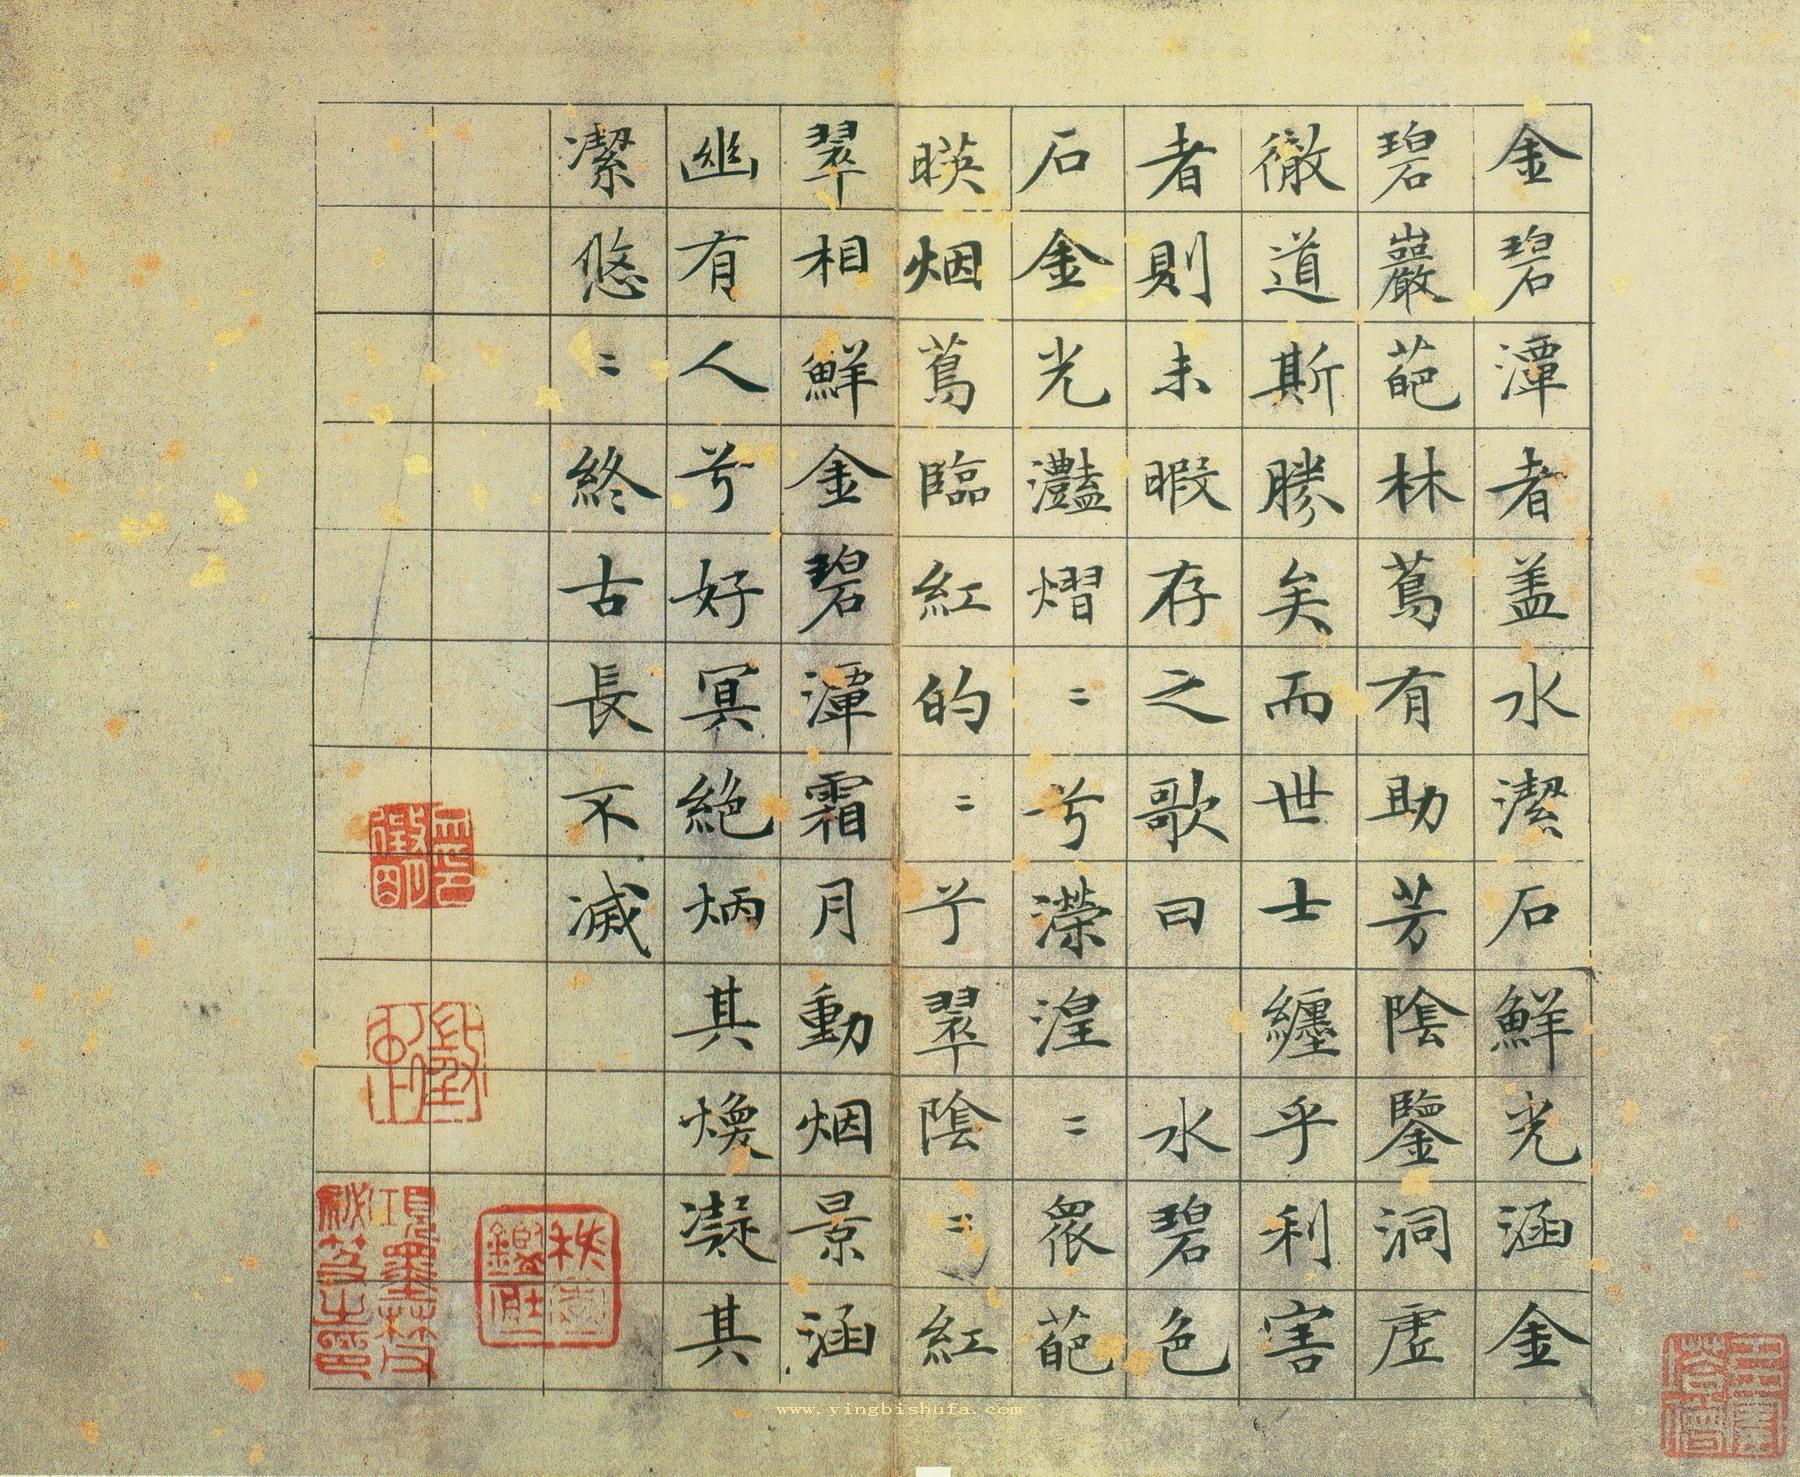 金碧潭者盖水潔石鮮光涵金
碧巖葩林蔦有助芳陰鑒洞虛
徹道斯勝矣而世士纏乎利害
者則未暇存之歌曰 水碧色
石金光灩熠〻兮濴湟〻衆葩
暎烟蔦臨紅的〻兮翠陰〻紅
翠相鮮金碧潭霜月動烟景涵
幽有人兮好冥絶炳其煥凝其
潔悠〻終古長不滅
項墨林父
秘笈之印
www.yingbishufa.com